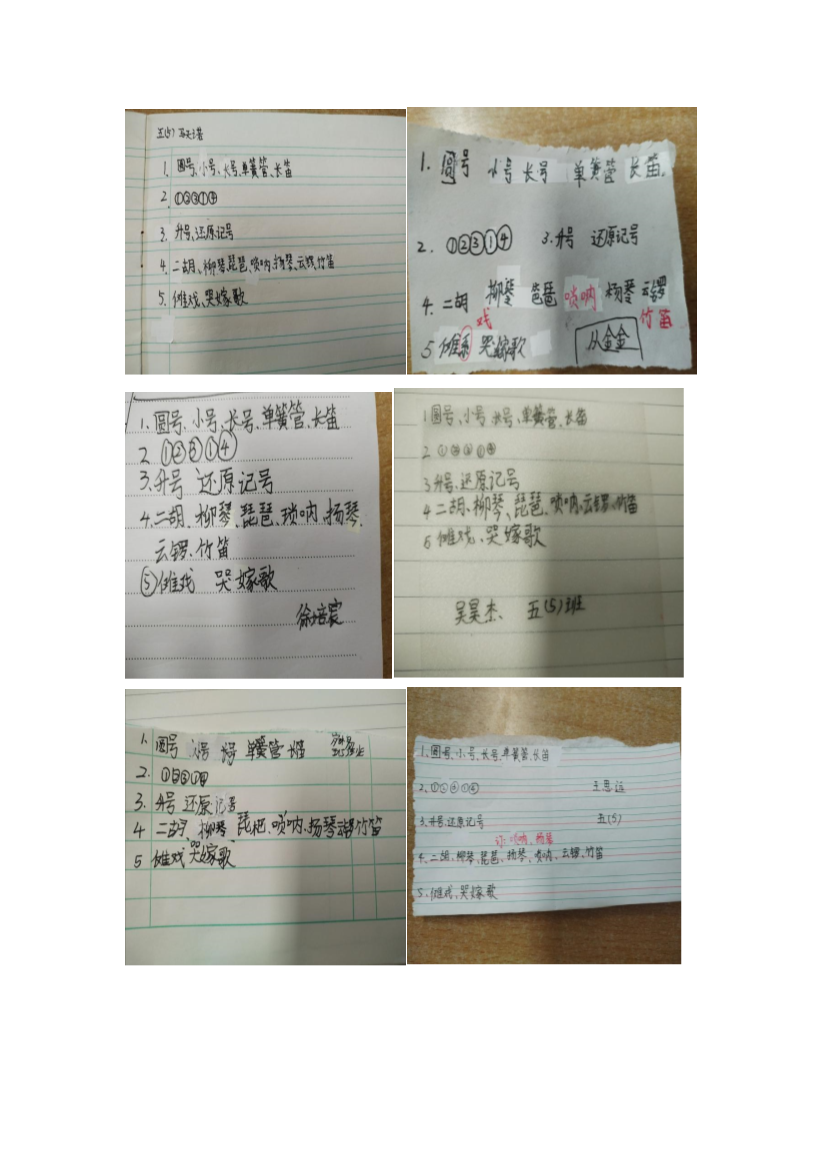 五(5)
1. 圆号、小号、长号、单簧管、长笛
2. ①②③①④
3. 升号、还原记号
4. 二胡、柳琴、琵琶、唢呐、扬琴、云锣、竹笛
5. 傩戏、哭嫁歌
1. 圆号 小号 长号 单簧管 长笛.
2. ①②③①④ 3. 升号 还原记号
4. 二胡 柳琴 琵琶 唢呐 扬琴 云锣
戏 竹笛
5 傩系 哭嫁歌 从金金
1. 圆号、小号、长号、单簧管、长笛
2 ①②③①④
3. 升号 还原记号
4. 二胡、柳琴、琵琶、琐呐、扬琴、
云锣、竹笛
⑤傩戏 哭嫁歌
徐培宸
1 圆号、小号、长号、单簧管、长笛
2 ①②③①④
3 升号、还原记号
4 二胡、柳琴、琵琶、唢呐、云锣、竹笛
5 傩戏、哭嫁歌
吴昊杰 五(5)班
1. 圆号 小号 长号 单簧管 长笛
2. ①②③①④
3. 升号 还原记号
4 二胡、柳琴、琵杷、唢呐、扬琴云锣竹笛
5 傩戏 哭嫁歌
1. 圆号、小号、长号、单簧管、长笛
2. ①②③①④ 王思远
3. 升号、还原记号 五(5)
订: 唢呐、扬琴
4. 二胡、柳琴、琵琶、扬琴、唢呐、云锣、竹笛
5. 傩戏、哭嫁歌